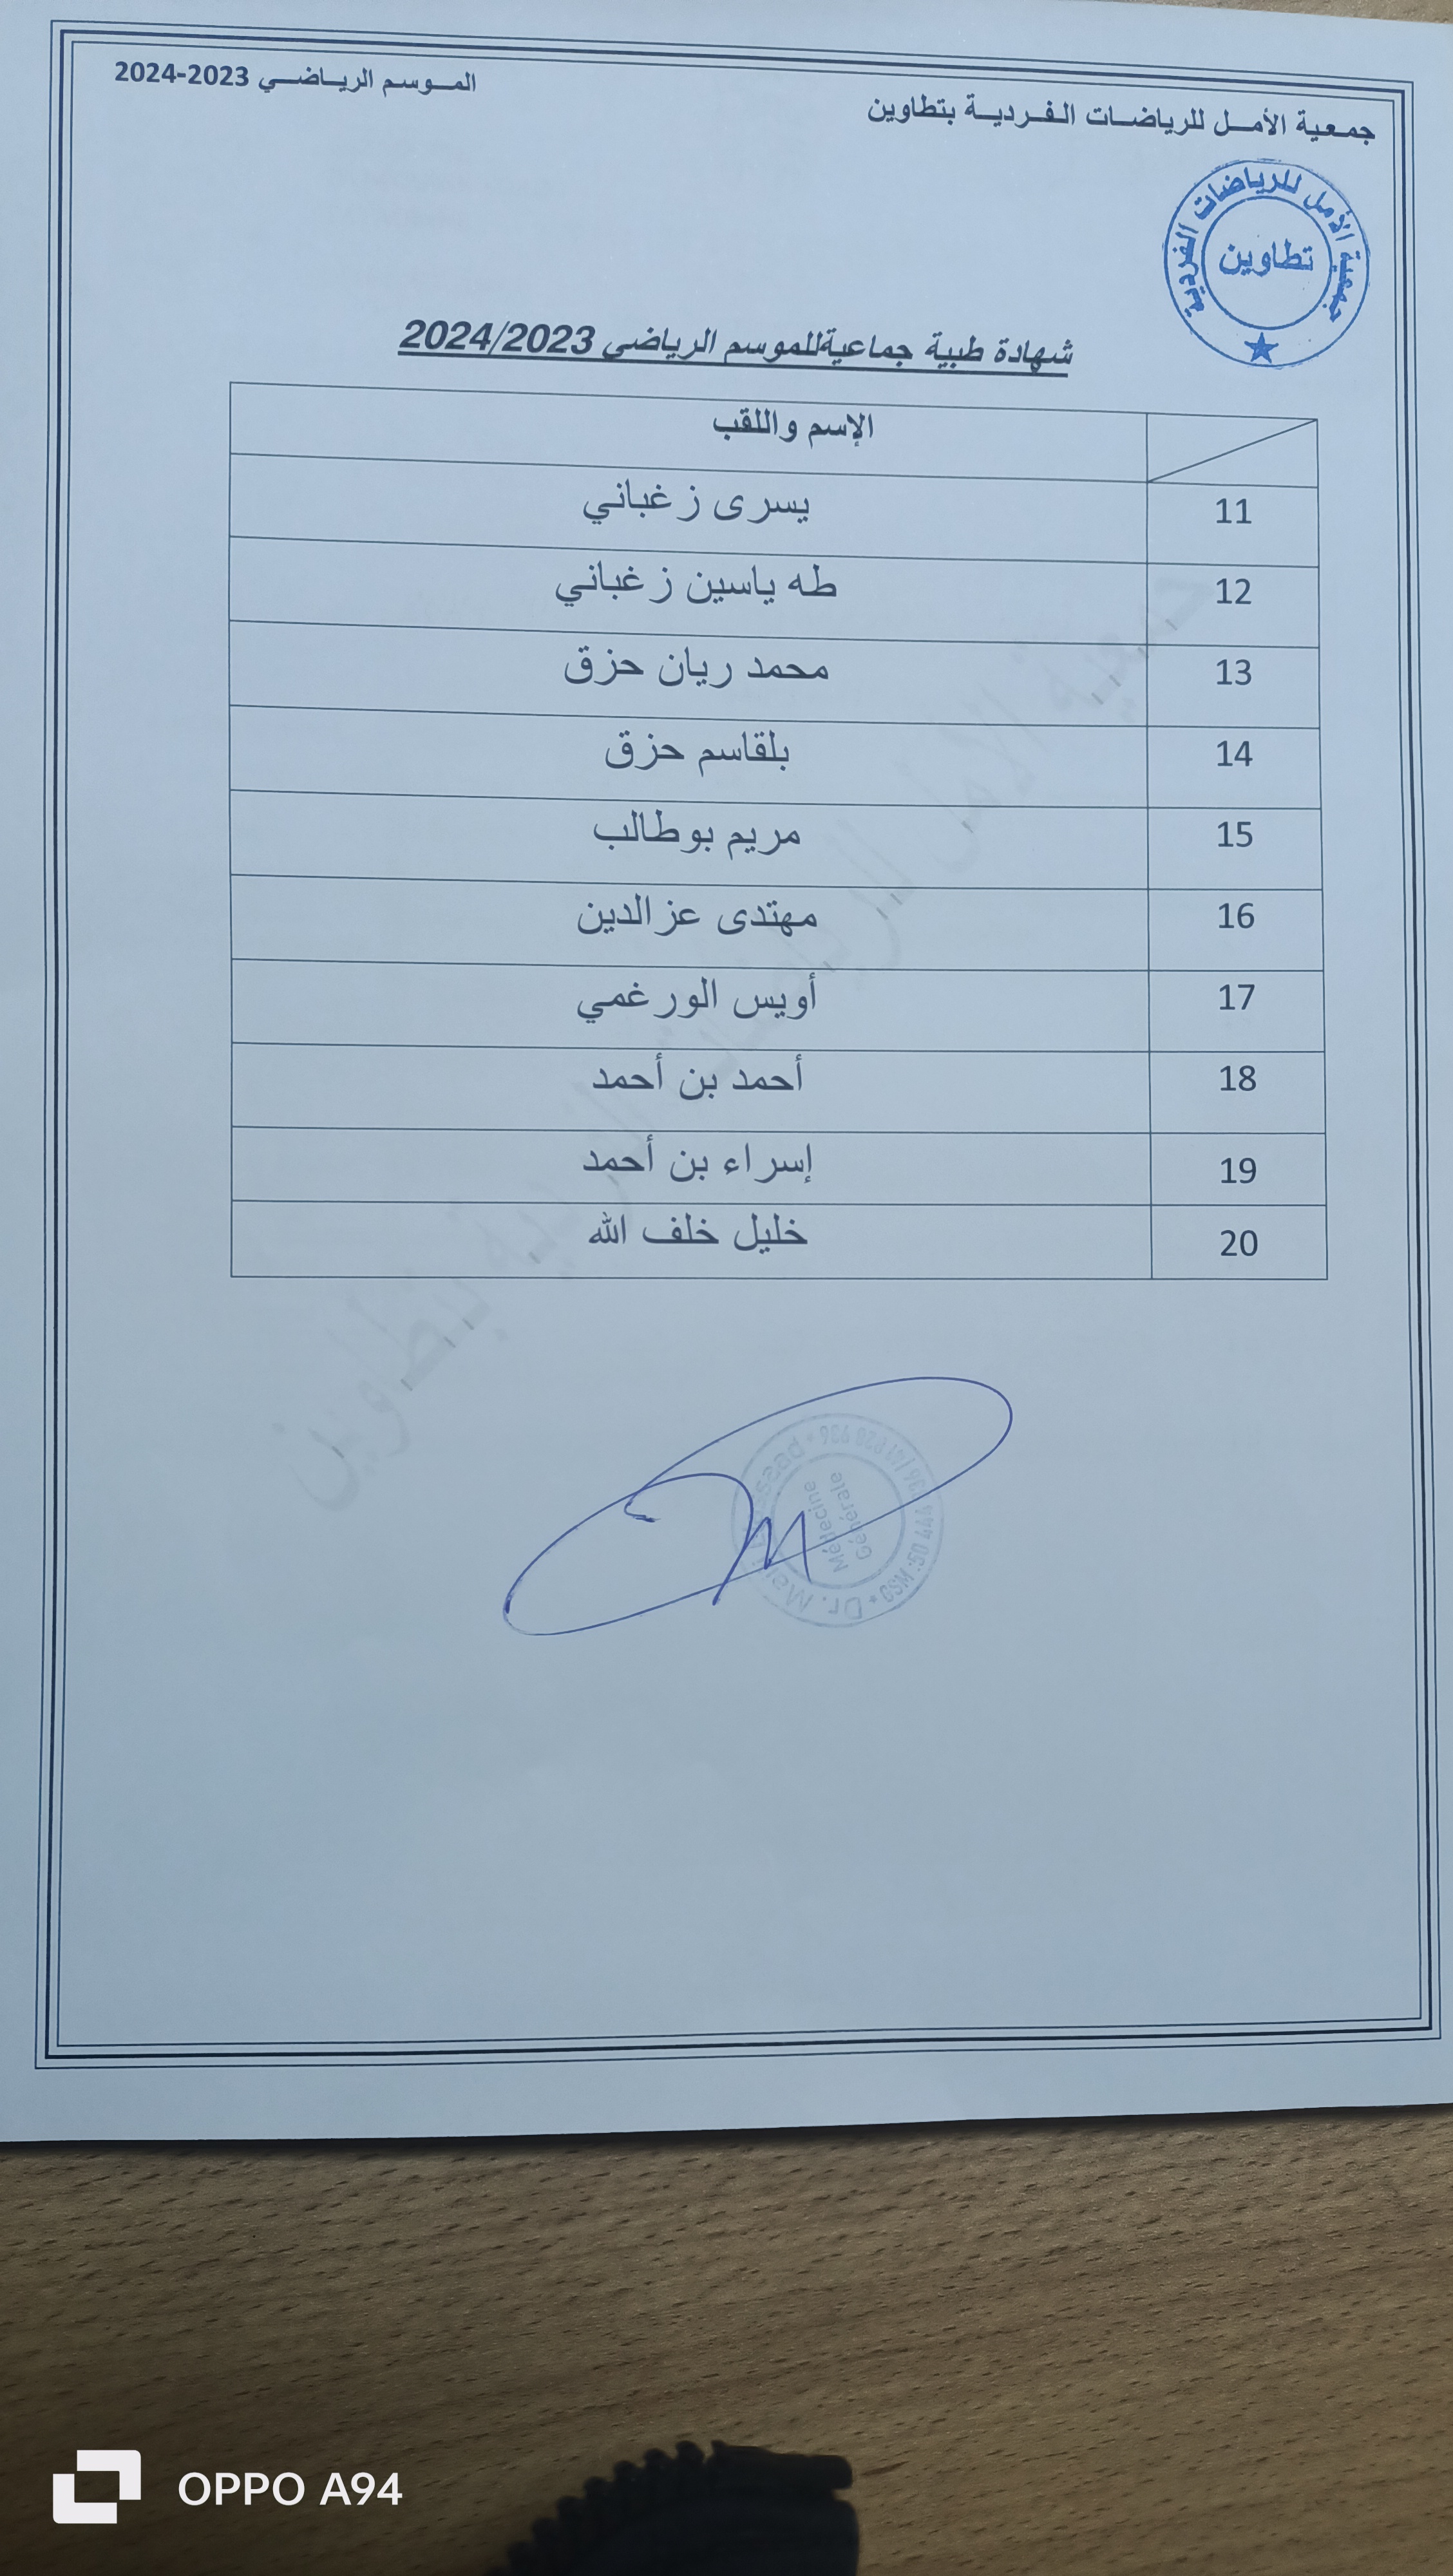 جمعية الأمل للرياضات الفردية بتطاوين
الموسم الرياضي 2023-2024
جمعية الأمل للرياضات الفردية
تطاوين
شهادة طبية جماعيةللموسم الرياضي 2024/2023
الإسم واللقب
11 يسرى زغباني
12 طه ياسين زغباني
13 محمد ريان حزق
14 بلقاسم حزق
15 مريم بوطالب
16 مهتدى عزالدين
17 أويس الورغمي
18 أحمد بن أحمد
19 إسراء بن أحمد
20 خليل خلف الله
جمعية الأمل للرياضات الفردية بتطاوين
Dr.
Médecine
Générale
GSM:50 444
OPPO A94